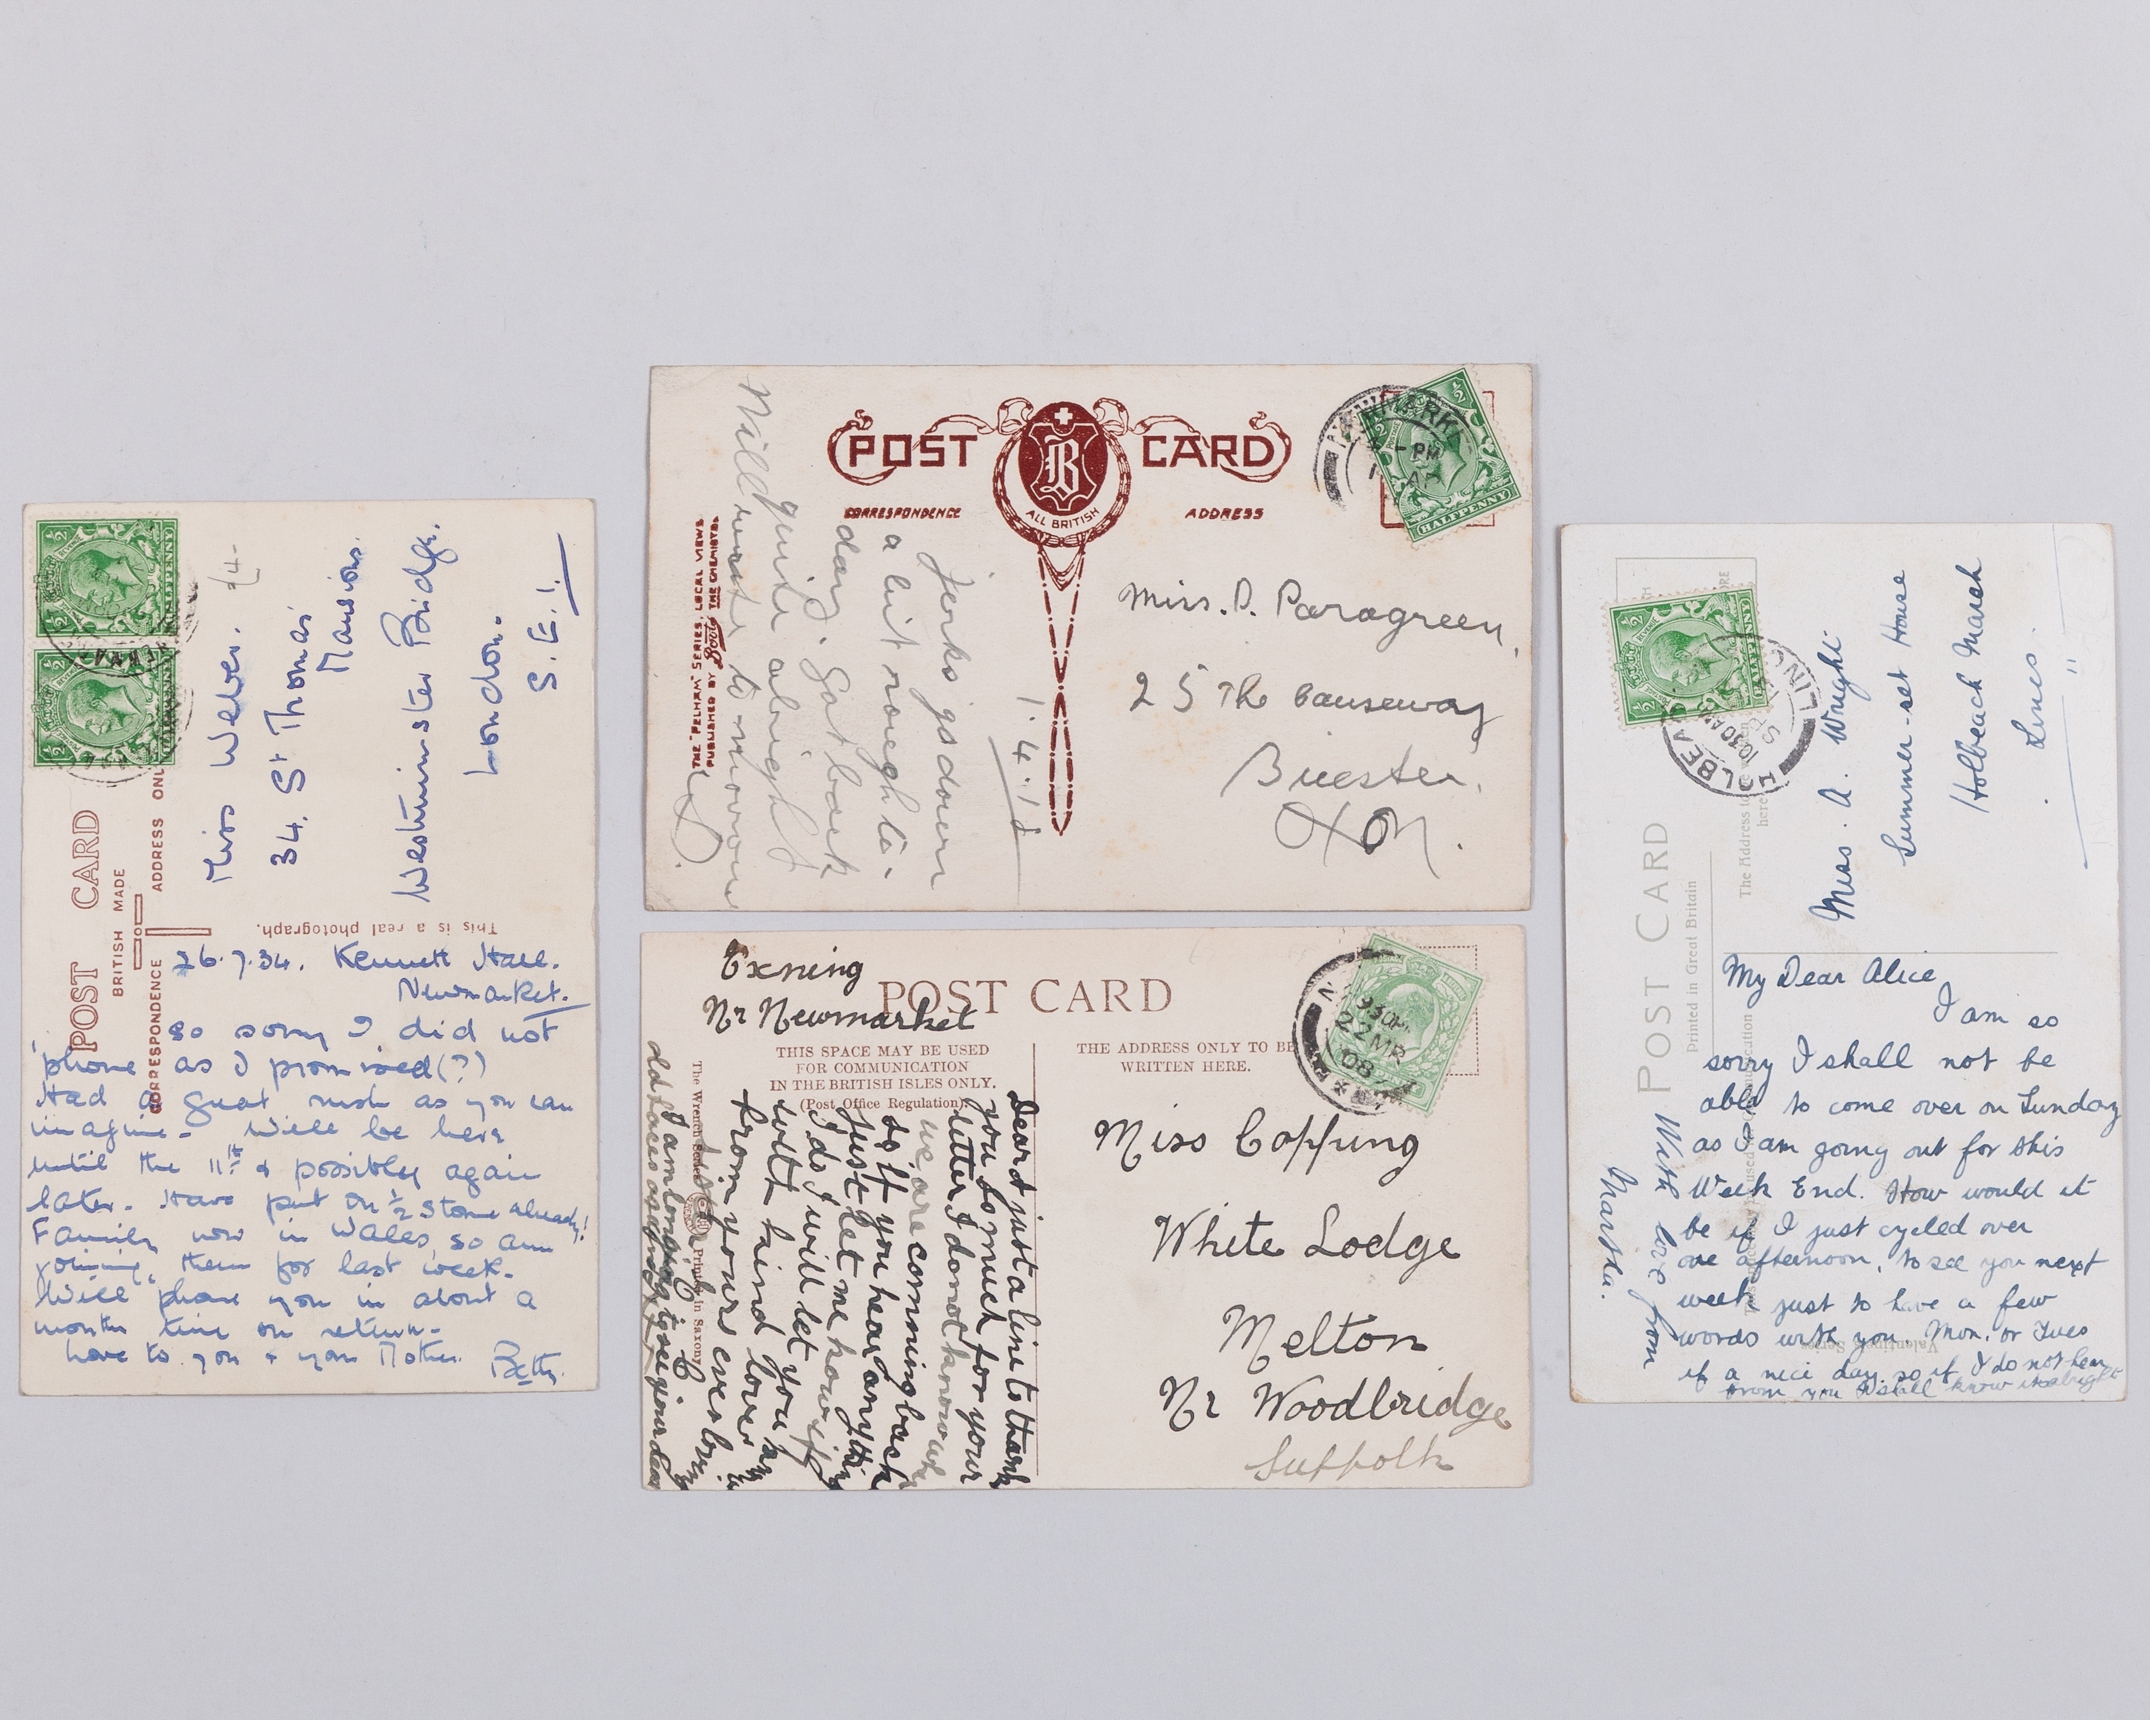 POST CARD
BRITISH MADE
CORRESPONDENCE
ADDRESS ONLY
This is a real photograph.
HALFPENNY
HALFPENNY
Miss Weber.
34. St Thomas'
Mansions.
Westminster Bridge.
London.
S.E.1.
26.7.34. Kennett Hall.
Newmarket.
So sorry I did not
'phone as I promised (?)
Had a great rush as you can
imagine - Will be here
until the 11th & possibly again
later. Have put on ½ stone already!
Family now in Wales, so am
joining them for last week.
Will phone you in about a
months time on return.
Love to you & your Mother.
Betty.
POST CARD
B
ALL BRITISH
CORRESPONDENCE
ADDRESS
THE "PELHAM" SERIES. LOCAL VIEWS.
PUBLISHED BY Boots THE CHEMISTS.
NEWMARKET
PM
HALFPENNY
Miss. D. Paragreen,
25 The Causeway
Bicester.
Oxon.
1.4.1
down
a bit rough to-
day. Got back
quite alright
Will write to morrow
POST CARD
Exning
Nr Newmarket
THIS SPACE MAY BE USED
FOR COMMUNICATION
IN THE BRITISH ISLES ONLY.
(Post Office Regulation).
THE ADDRESS ONLY TO BE
WRITTEN HERE.
The Wrench Series
Printed in Saxony
930PM
22 MR
08
Dear d just a line to thank
you so much for your
letter I do not know when
we are comming back
so if you hear any thing
just let me know if
I do I will let you know
with kind love
from yours ever loving
I am longing to see your dear
old faces again
Miss Copping
White Lodge
Melton
Nr Woodbridge
Suffolk
POST CARD
Printed in Great Britain
The Address to
here
Valentines Series
HOLBEACH
LINCS
1030AM
HALFPENNY
Miss. A. Wright
Summer-set House
Holbeach Marsh
Lincs.
My Dear Alice,
I am so
sorry I shall not be
able to come over on Sunday
as I am going out for this
Week End. How would it
be if I just cycled over
one afternoon, to see you next
week, just to have a few
words with you. Mon. or Tues
if a nice day. so if I do not hear
from you I shall know its alright
With love from
Marsha.